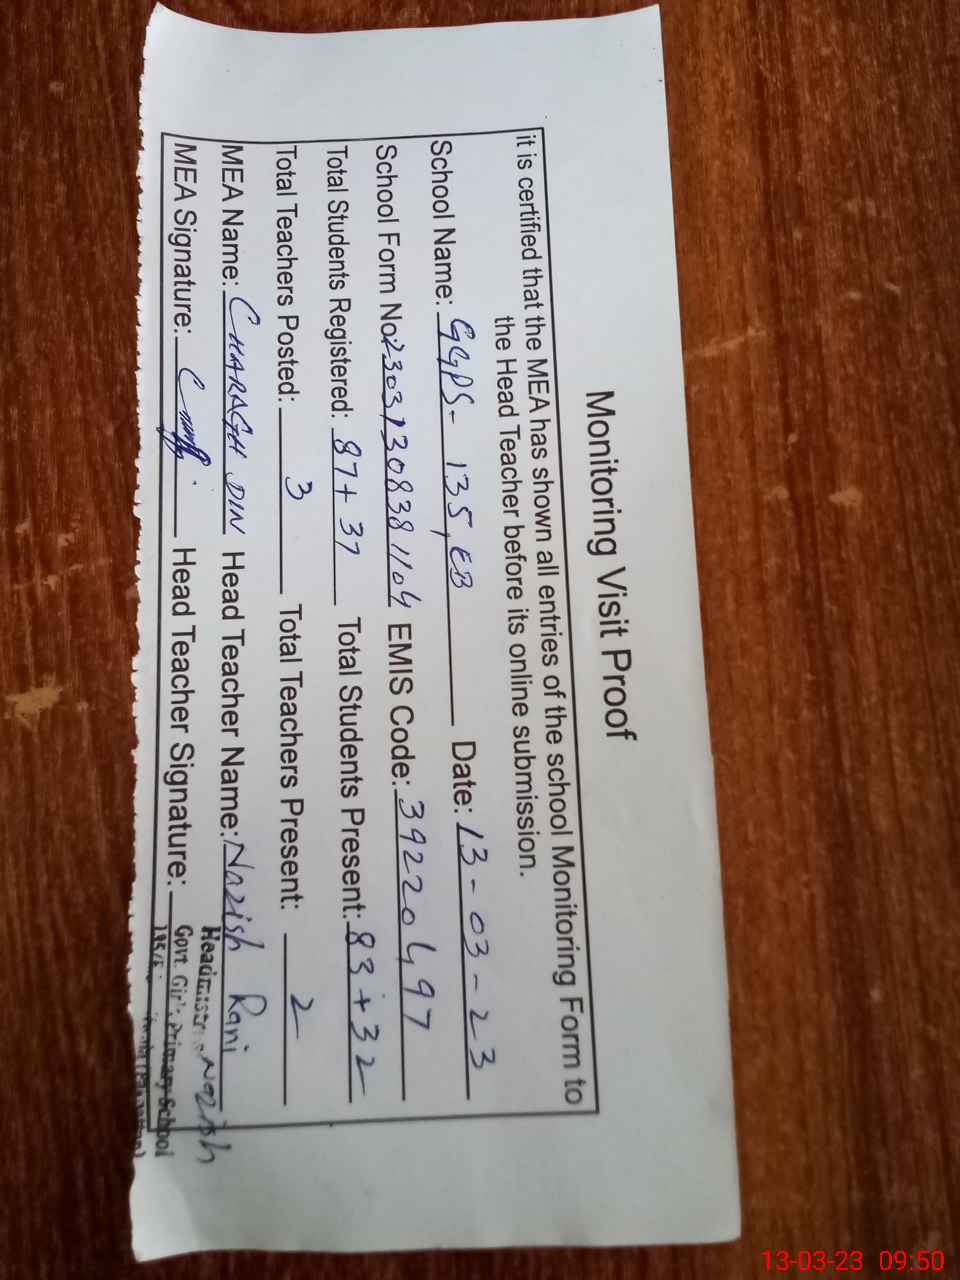 Monitoring Visit Proof
it is certified that the MEA has shown all entries of the school Monitoring Form to
the Head Teacher before its online submission.
School Name: GGPS- 135, EB Date: 13-03-23
School Form No: 23037308381104 EMIS Code: 39220497
Total Students Registered: 87+37 Total Students Present: 83+32
Total Teachers Posted: 3 Total Teachers Present: 2
MEA Name: CHARAGH DIN Head Teacher Name: Nazish Rani
MEA Signature: Head Teacher Signature: Nazish
Govt. Girls Primary School
13-03-23 09:50